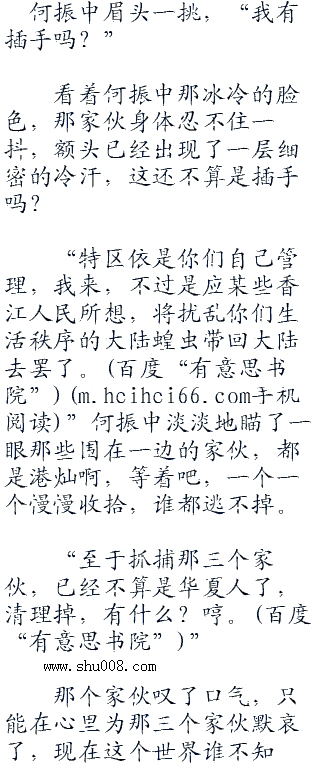 何振中眉头一挑，“我有
插手吗？”
看着何振中那冰冷的脸
色，那家伙身体忍不住一
抖，额头已经出现了一层细
密的冷汗，这还不算是插手
吗？
“特区依是你们自己管
理，我来，不过是应某些香
江人民所想，将扰乱你们生
活秩序的大陆蝗虫带回大陆
去罢了。(百度“有意思书
院”)(m.hcihci66.com手机
阅读)”何振中淡淡地瞄了一
眼那些围在一边的家伙，都
是港灿啊，等着吧，一个一
个慢慢收拾，谁都逃不掉。
“至于抓捕那三个家
伙，已经不算是华夏人了，
清理掉，有什么？哼。(百度
“有意思书院”)”
www.shu008.com
那个家伙叹了口气，只
能在心里为那三个家伙默哀
了，现在这个世界谁不知